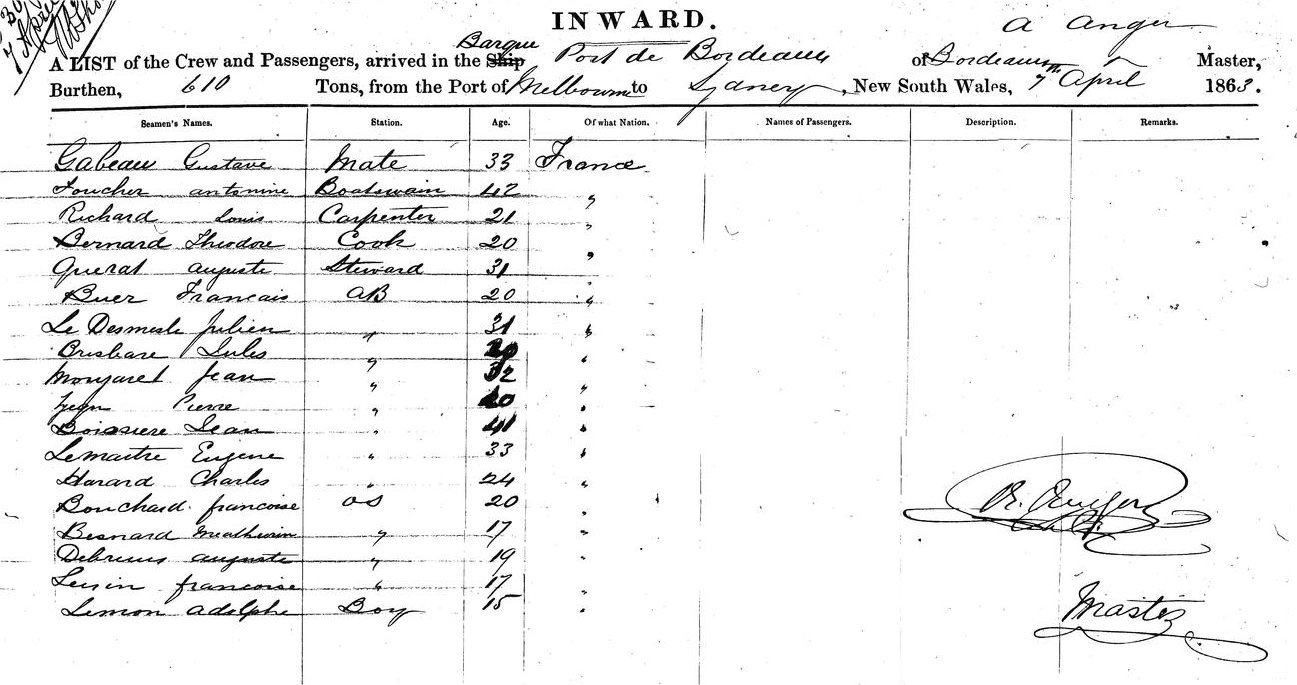 INWARD.
7 April
A Anger
Barque
A LIST of the Crew and Passengers, arrived in the Ship Port de Bordeaux of Bordeaux Master,
Burthen, 610 Tons, from the Port of Melbourne to Sydney, New South Wales, 7th April 1863.
Seamen's Names. Station. Age. Of what Nation. Names of Passengers. Description. Remarks.
Gabeau Gustave Mate 33 France
Foucher antonine Boatswain 42 "
Richard Louis Carpenter 21 "
Bernard Theodore Cook 20 "
Querat auguste Steward 31 "
Buer Francais AB 20 "
Le Desmesle Julien " 31 "
Brisbare Jules " "
Monjaret Jean " 32 "
Pierre " 20 "
Boissiere Jean " 41 "
Lemaitre Eugene " 33 "
Harard Charles " 24 "
Bouchard francoise OS 20 "
Besnard " 17 "
auguste " 19 "
francoise " 17 "
Lemon adolphe Boy 15 "
Master